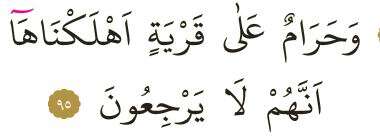 وَحَرَامٌ عَلٰى قَرْيَةٍ اَهْلَكْنَاهَٓا
اَنَّهُمْ لَا يَرْجِعُونَ ٩٥